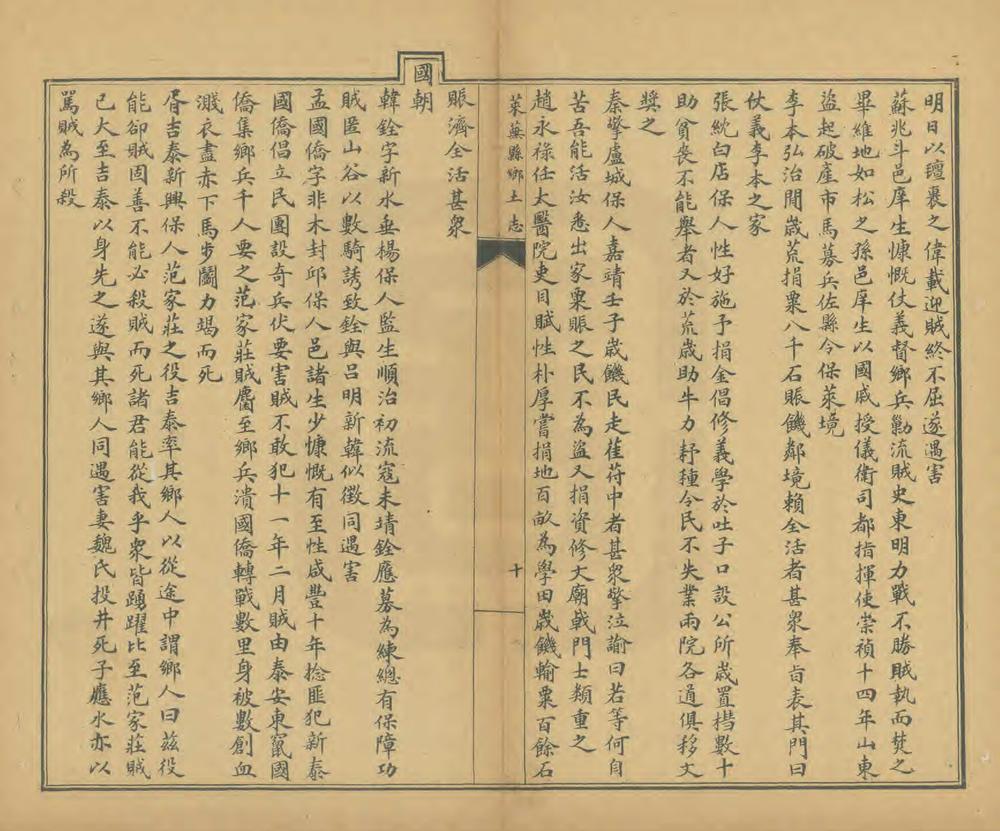 明日以瓊襄之偉載迎賊終不屈遂遇害
蘇兆斗邑庠生慷慨仗義督鄉兵勦流賊史東明力戰不勝賊執而焚之
畢維地如松之孫邑庠生以國戚授儀衛司都指揮使崇禎十四年山東
盜起破產市馬募兵佐縣令保萊境
李本弘治間歲荒捐粟八千石賑饑鄰境賴全活者甚衆奉旨表其門曰
仗義李本之家
張紞白店保人性好施予捐金倡修義學於吐子口設公所歲置槥數十
助貧喪不能舉者又於荒歲助牛力籽種令民不失業兩院各道俱移文
奬之
秦擎盧城保人嘉靖壬子歲饑民走萑苻中者甚衆擎泣諭曰若等何自
苦吾能活汝悉出家粟賑之民不為盜又捐資修文廟戟門士類重之
趙永祿任太醫院吏目賦性朴厚嘗捐地百畝為學田歲饑輸粟百餘石
萊蕪縣鄉土志
十
賑濟全活甚衆
國朝
韓銓字新水垂楊保人監生順治初流寇未靖銓應募為練總有保障功
賊匿山谷以數騎誘致銓與呂明新韓似徵同遇害
孟國僑字非木封邱保人邑諸生少慷慨有至性咸豐十年捻匪犯新泰
國僑倡立民團設奇兵伏要害賊不敢犯十一年二月賊由泰安東竄國
僑集鄉兵千人要之范家莊賊麕至鄉兵潰國僑轉戰數里身被數創血
濺衣盡赤下馬步鬭力竭而死
胥吉泰新興保人范家莊之役吉泰率其鄉人以從途中謂鄉人曰茲役
能卻賊固善不能必殺賊而死諸君能從我乎衆皆踴躍比至范家莊賊
已大至吉泰以身先之遂與其鄉人同遇害妻魏氏投井死子應水亦以
罵賊為所殺